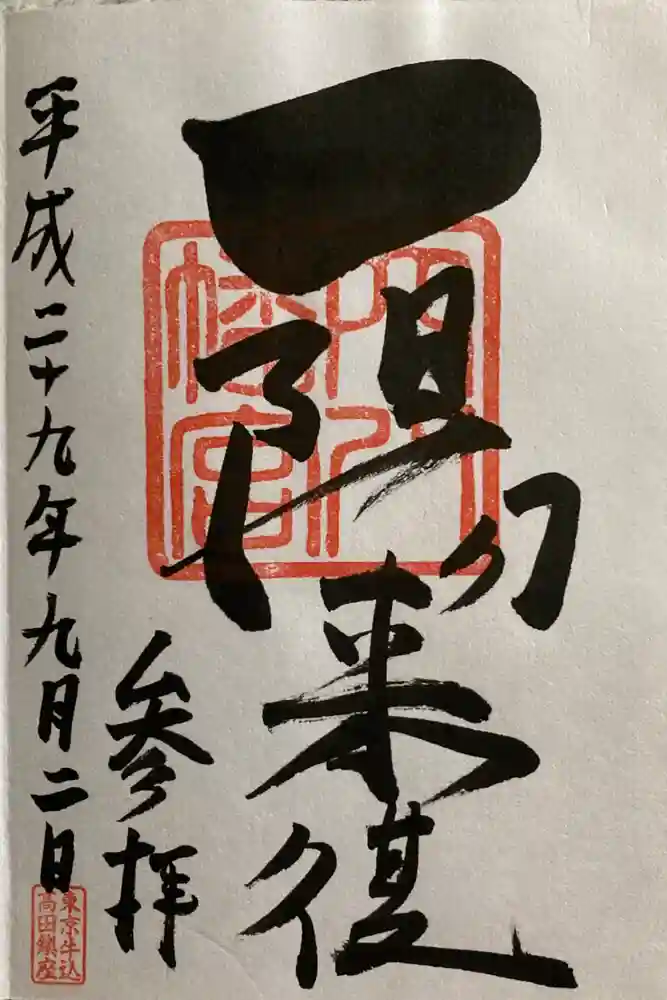 一陽来復
穴八幡宮
参拝
平成二十九年九月二日
東京牛込
高田鎮座